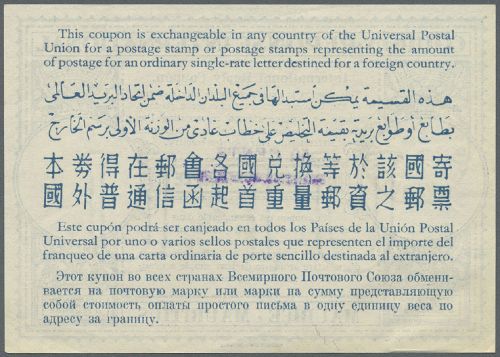 This coupon is exchangeable in any country of the Universal Postal
Union for a postage stamp or postage stamps representing the amount
of postage for an ordinary single-rate letter destined for a foreign country.
هذه القسيمة يمكن استبدالها فى جميع البلدان الداخلة ضمن اتحاد البريد العالمى
بطابع أو طوابع بريدية بقيمة التخليص على خطاب عادى من الوزنة الأولى برسم الخارج
本券得在郵會各國兑換等於該國寄
國外普通信函起首重量郵資之郵票
Este cupón podrá ser canjeado en todos los Países de la Unión Postal
Universal por uno o varios sellos postales que representen el importe del
franqueo de una carta ordinaria de porte sencillo destinada al extranjero.
Этот купон во всех странах Всемирного Почтового Союза обмени-
вается на почтовую марку или марки на сумму представляющую
собой стоимость оплаты простого письма в одну единицу веса по
адресу за границу.